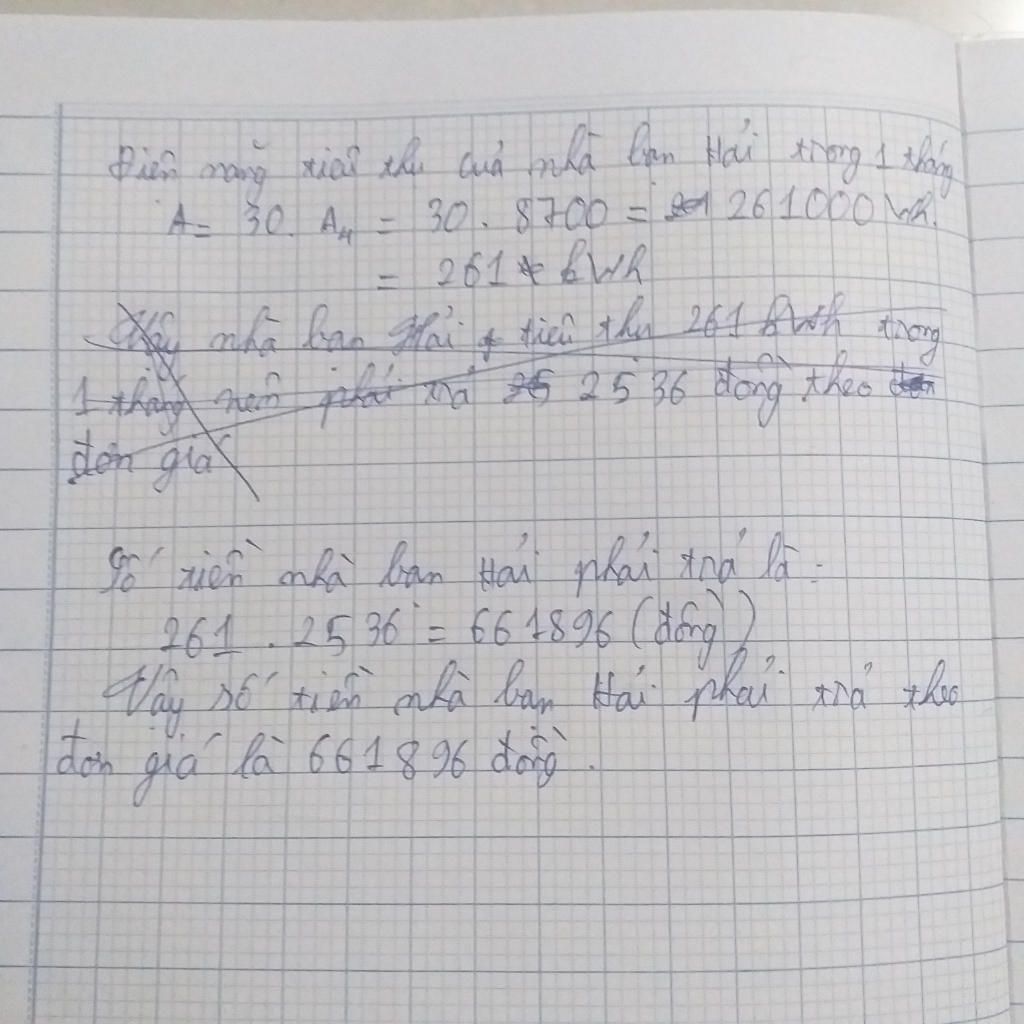 Điện năng tiêu thụ của nhà bạn Hải trong 1 tháng
A = 30. A₄ = 30 . 8700 = 261000 Wh.
= 261 kWh
Vậy nhà bạn Hải tiêu thụ 261 kWh trong
1 tháng nên phải trả 2536 đồng theo
đơn giá
Số tiền nhà bạn Hải phải trả là:
261 . 2536 = 661896 (đồng)
Vậy số tiền nhà bạn Hải phải trả theo
đơn giá là 661896 đồng.